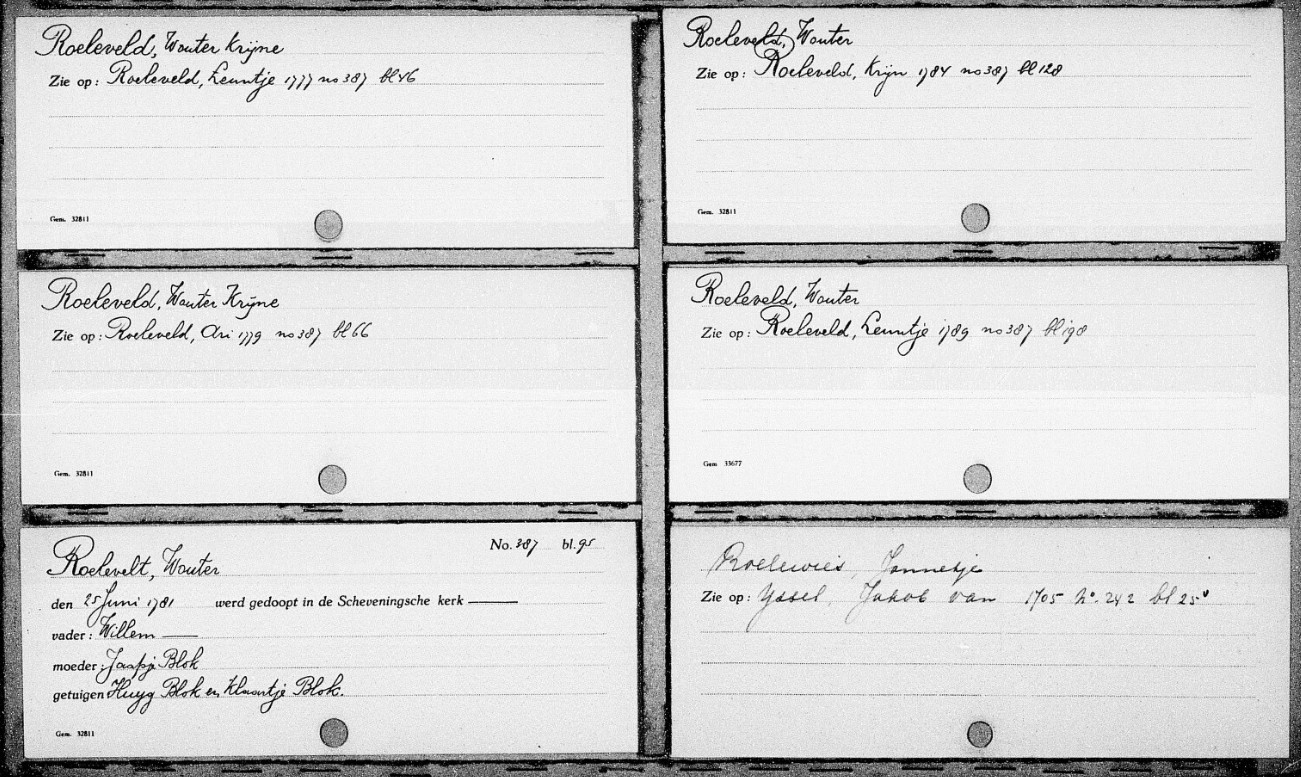 Roeleveld, Wouter Krijne
Zie op: Roeleveld, Leuntje 1777 no 387 bl 46
Gem. 32811
Roeleveld, Wouter
Zie op: Roeleveld, Krijn 1784 no 387 bl 128
Gem. 32811
Roeleveld, Wouter Krijne
Zie op: Roeleveld, Ari 1779 no 387 bl 66
Gem. 32811
Roeleveld, Wouter
Zie op: Roeleveld, Leuntje 1789 no 387 bl 198
Gem 33677
No. 387 bl. 95
Roelevelt, Wouter
den 25 Juni 1781 werd gedoopt in de Scheveningsche kerk
vader: Willem
moeder: Jaapje Blok
getuigen Huyg Blok en Klaartje Blok.
Gem. 32811
Roelewies, Jannetje
Zie op: Yssel, Jakob van 1705 No. 242 bl 25v